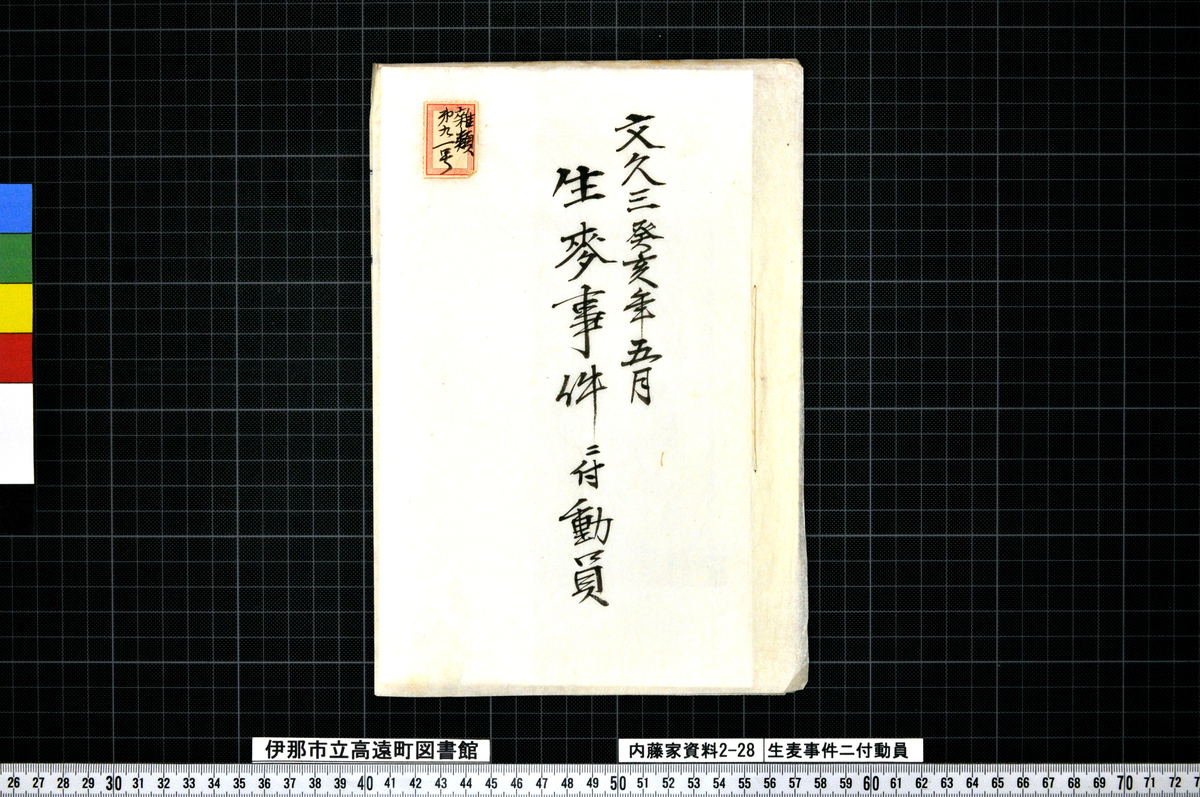 文久三癸亥年五月
生麥事件ニ付動員
雑類
第九一号
伊那市立高遠町図書館
内藤家資料2-28 生麦事件ニ付動員
26 27 28 29 30 31 32 33 34 35 36 37 38 39 40 41 42 43 44 45 46 47 48 49 50 51 52 53 54 55 56 57 58 59 60 61 62 63 64 65 66 67 68 69 70 71 72